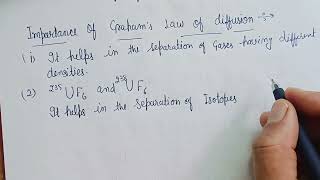 Importance of Graham's Law of diffusion :-
(1) It helps in the separation of Gases having different
densities.
(2) ²³⁵UF₆ and ²³⁸UF₆
It helps in the separation of Isotopes